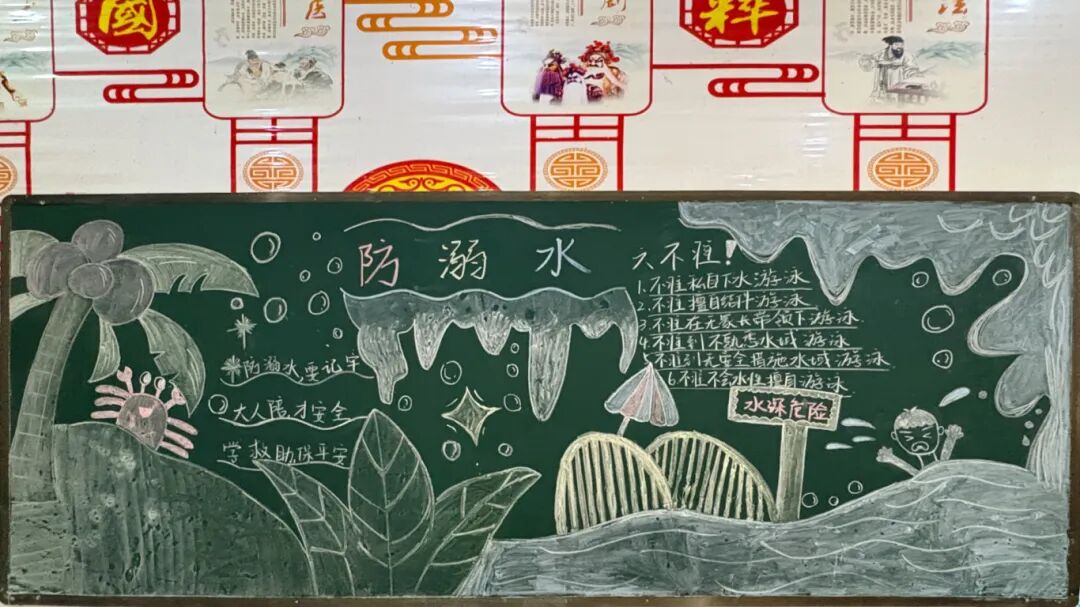 國
医
粹
防溺水
防溺水,要记牢
大人陪才安全
学救助保平安
六不准!
1.不准私自下水游泳
2.不准擅自结伴游泳
3.不准在无家长带领下游泳
4.不准到不熟悉水域游泳
5.不准到无安全措施水域游泳
6.不准不会水性擅自游泳
水深危险